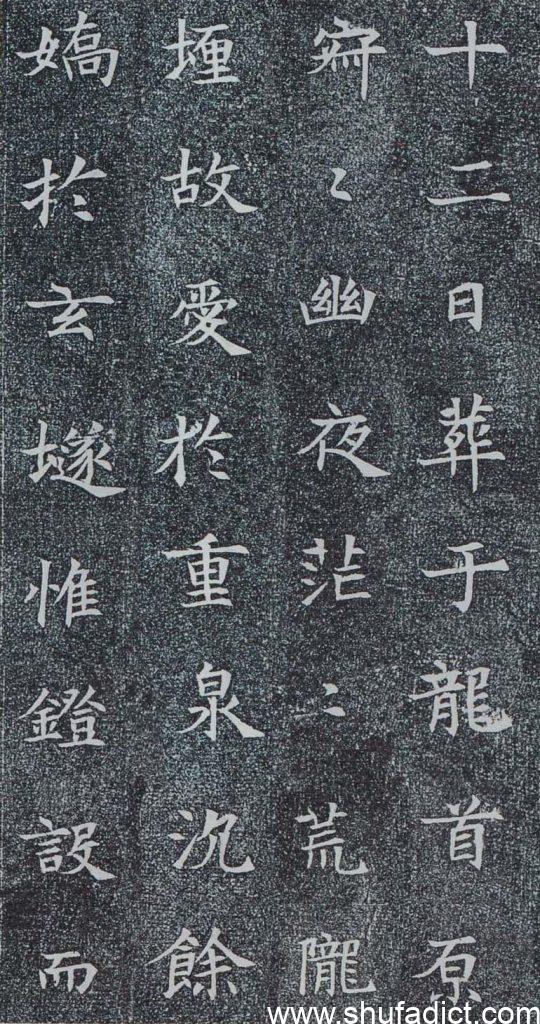 十二日葬于龍首原
寂〻幽夜茫〻荒隴
埋故愛於重泉沉餘
嬌於玄𡑞惟鐙設而
www.shufadict.com